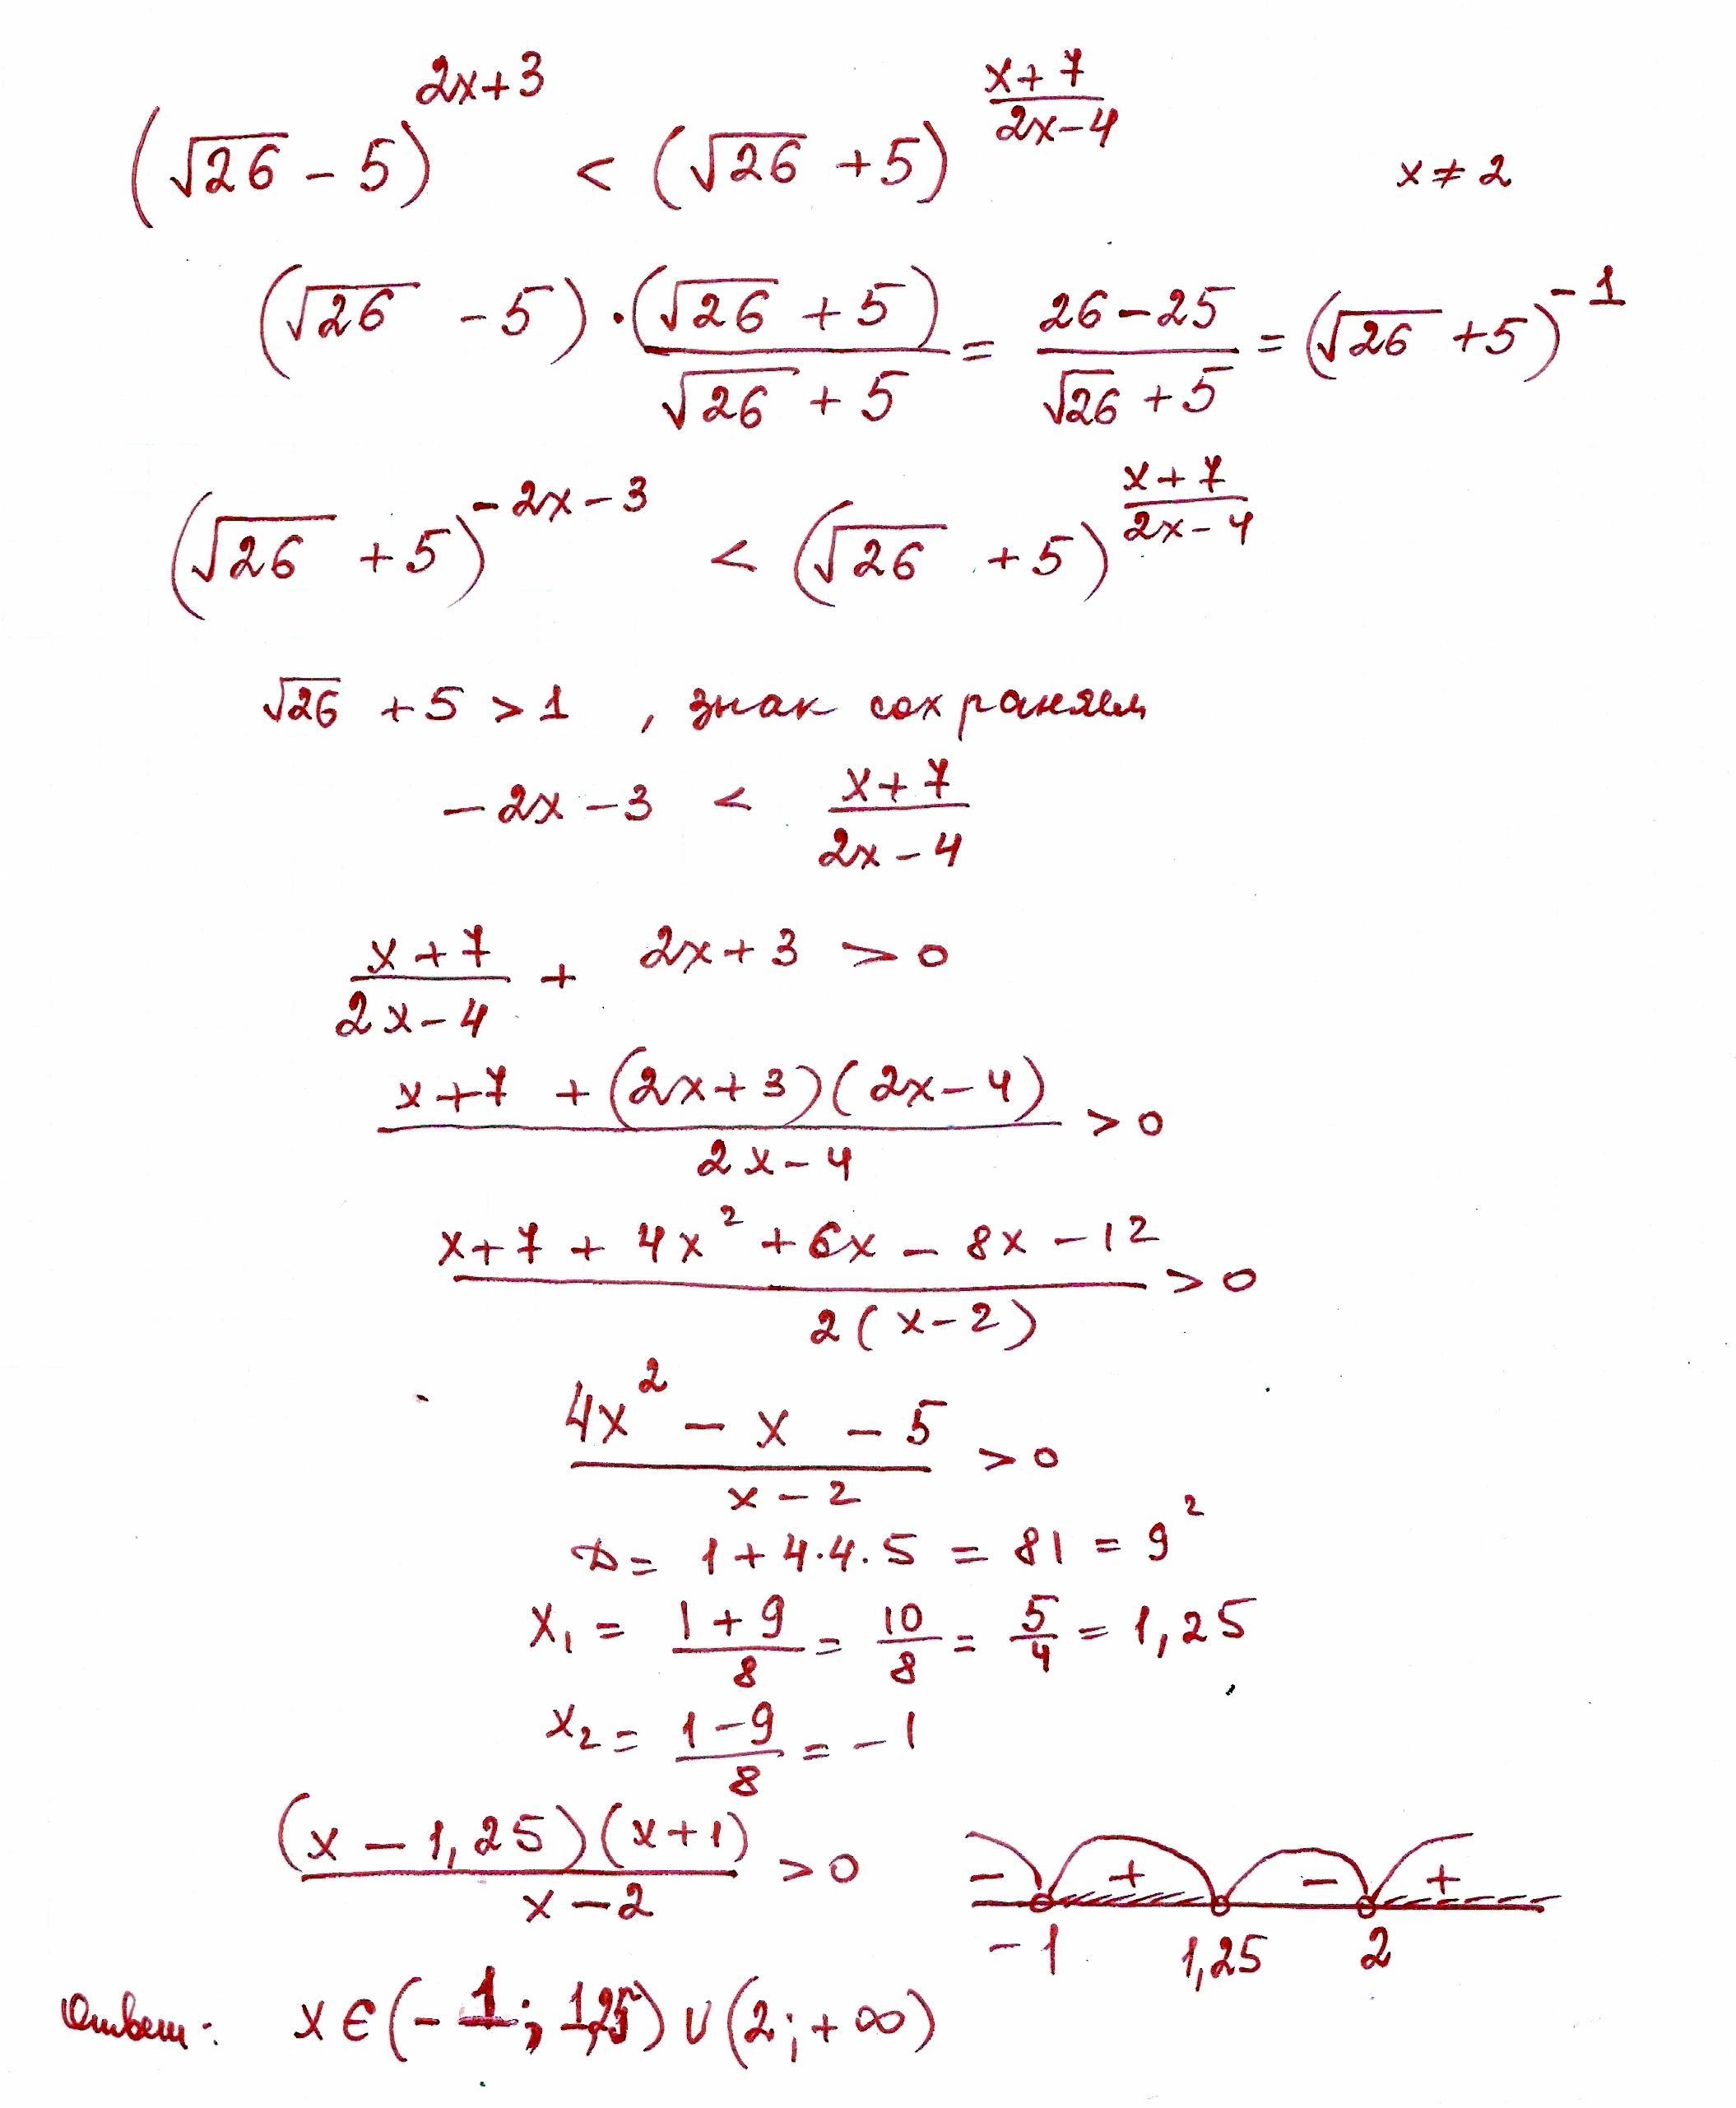 (√26 - 5)^(2x+3) < (√26 + 5)^((x+7)/(2x-4)) x ≠ 2
(√26 - 5) · (√26 + 5)/(√26 + 5) = (26 - 25)/(√26 + 5) = (√26 + 5)^(-1)
(√26 + 5)^(-2x-3) < (√26 + 5)^((x+7)/(2x-4))
√26 + 5 > 1 , знак сохраняем
-2x - 3 < (x+7)/(2x-4)
(x+7)/(2x-4) + 2x + 3 > 0
(x+7 + (2x+3)(2x-4))/(2x-4) > 0
(x+7 + 4x² + 6x - 8x - 12)/(2(x-2)) > 0
(4x² - x - 5)/(x-2) > 0
D = 1 + 4·4·5 = 81 = 9²
x₁ = (1+9)/8 = 10/8 = 5/4 = 1,25
x₂ = (1-9)/8 = -1
((x - 1,25)(x+1))/(x-2) > 0
- + - +
-1 1,25 2
Ответ: x ∈ (-1; 1,25) ∪ (2; +∞)